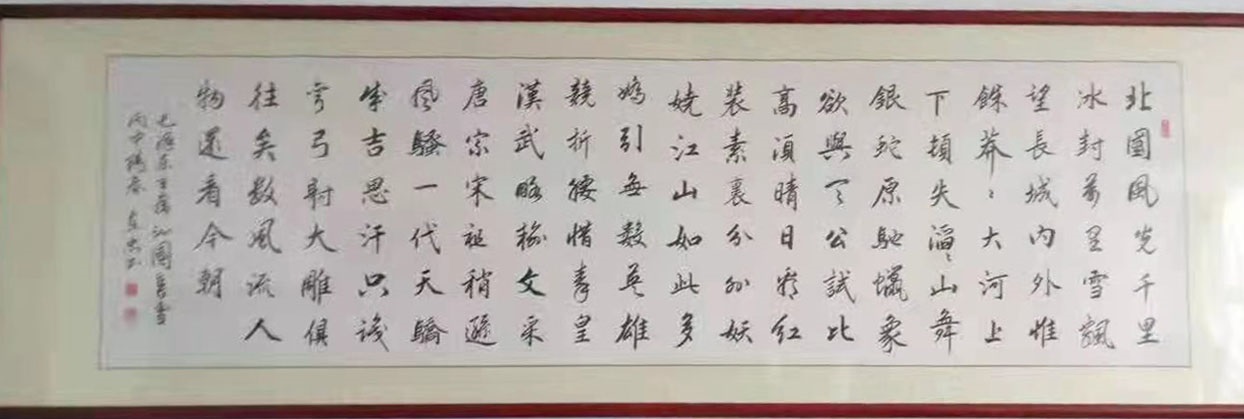 北國風光千里
冰封萬里雪飄
望長城内外惟
餘莽〻大河上
下頓失滔〻山舞
銀蛇原馳蠟象
欲與天公試比
高須晴日看紅
裝素裹分外妖
嬈江山如此多
嬌引無數英雄
競折腰惜秦皇
漢武略輸文采
唐宗宋祖稍遜
風騷一代天驕
成吉思汗只識
彎弓射大雕俱
往矣数風流人
物還看今朝
毛澤东主席沁園春雪
丙申 春 书